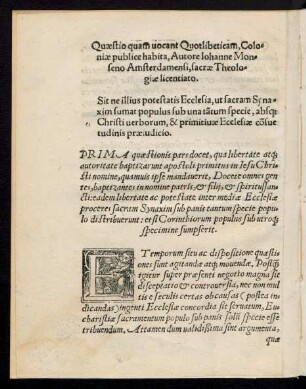 Quæstio quam uocant Quotlibeticam, Colo-
niæ publice habita, Autore Iohanne Mon-
seno Amsterdamensi, sacræ Theolo-
giæ licentiato.
Sit ne illius potestatis Ecclesia, ut sacram Synax
xim sumat populus sub una tātum specie, absq;
Christi uerborum, & primitiuæ Ecclesiæ cōsue
tudinis præiudicio.
PRIMA quæstionis pars docet, qua libertate atq;
autoritate baptizarunt apostoli primitus in Iesu Christi
nomine, quamuis ipse mandauerit, Docete omnes gen-
tes, baptizantes in nomine patris, & filij, & spiritus san-
cti: eadem libertate ac potestate interimedia Ecclesiæ
proceres sacram Synaxim sub panis tantum specie popu-
lo distribuerunt: etsi Corinthiorum populus sub utroq;
specimine sumpserit.
ETemporum situ ac dispositione quæsti
ones sunt agitandæ atq; mouendæ. Postq̃
igitur super præsenti negotio magna sit
disceptatio & controuersia, nec non mul
tis e seculis certas ob causas (postea in-
dicandas) ingenti Ecclesiæ concordia sit seruatum, Eu-
charistiæ sacramentum populo sub panis solū specie esse
tribuendum, Attamen dum ualidissima sint argumenta,
quæ